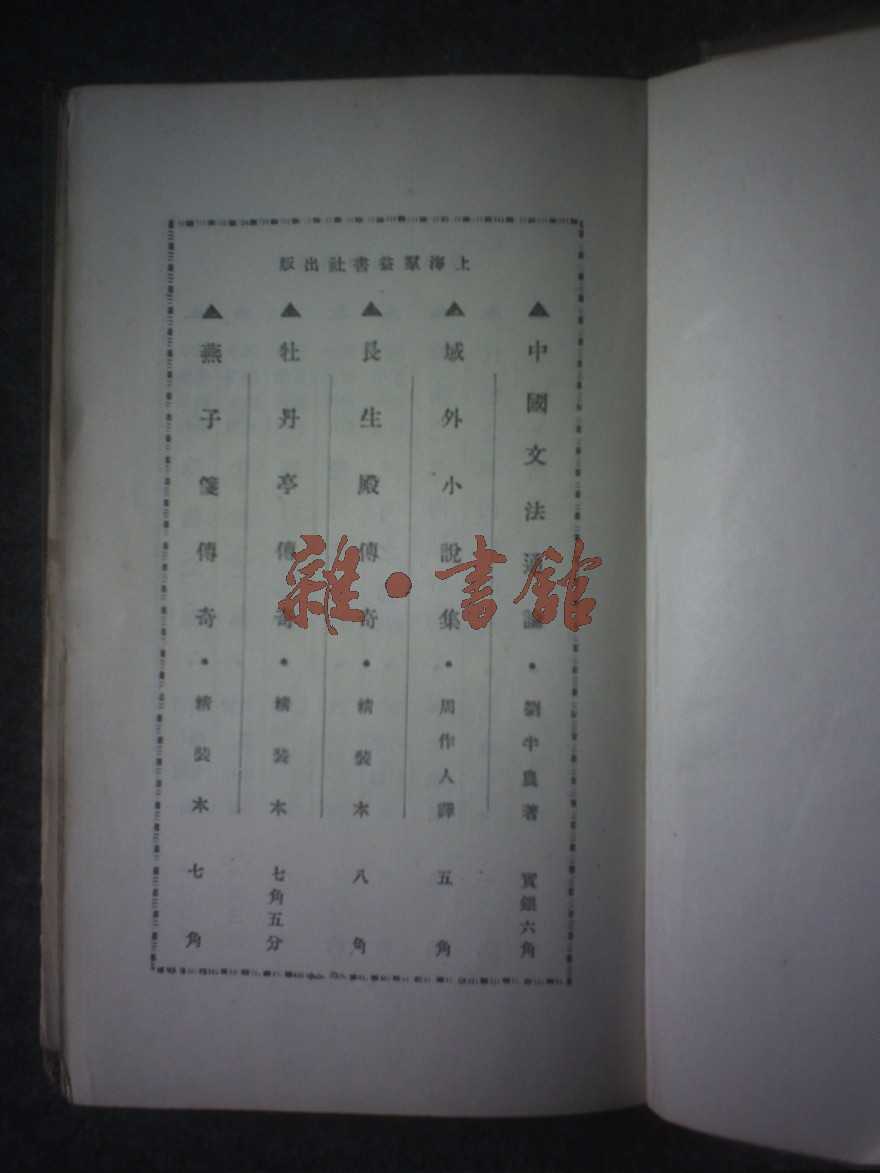 上海羣益書社出版
▲中國文法通論・劉半農著 實銀六角
▲域外小說集・周作人譯 五角
▲長生殿傳奇・精裝本 八角
▲牡丹亭傳奇・精裝本 七角五分
▲燕子箋傳奇・精裝本 七角
雜・書館